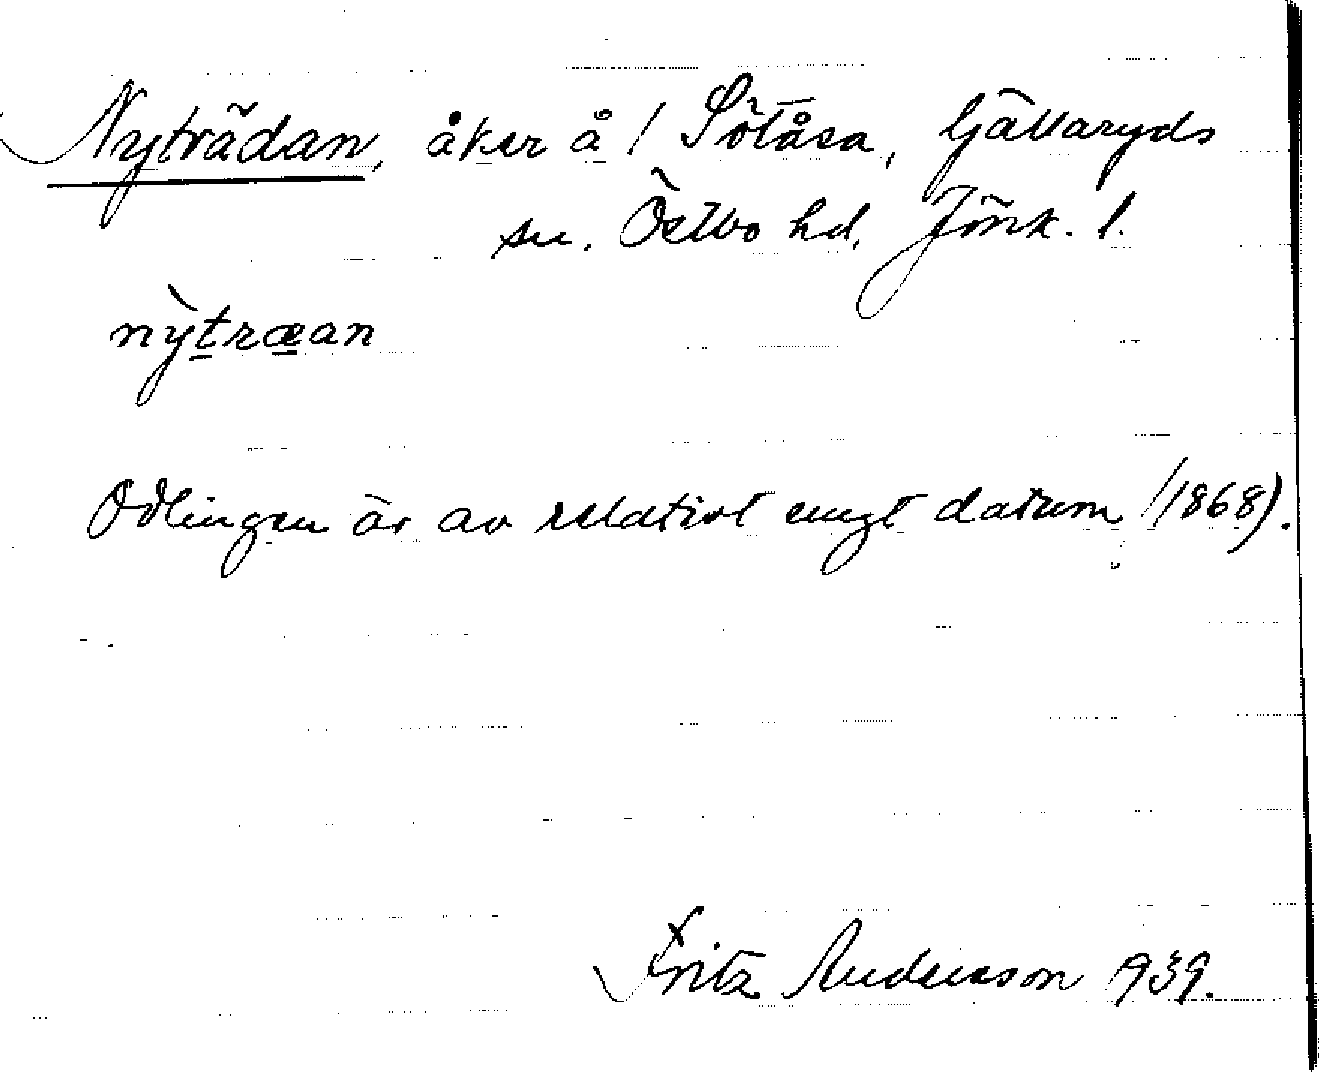 Nyträdan, åker å / Sötåsa, Ljällaryds
sn. Östbo hd, Jönk. l.
nỳtræan
Odlingen är av relativt ungt datum (1868).
Fritz Andersson 1939.